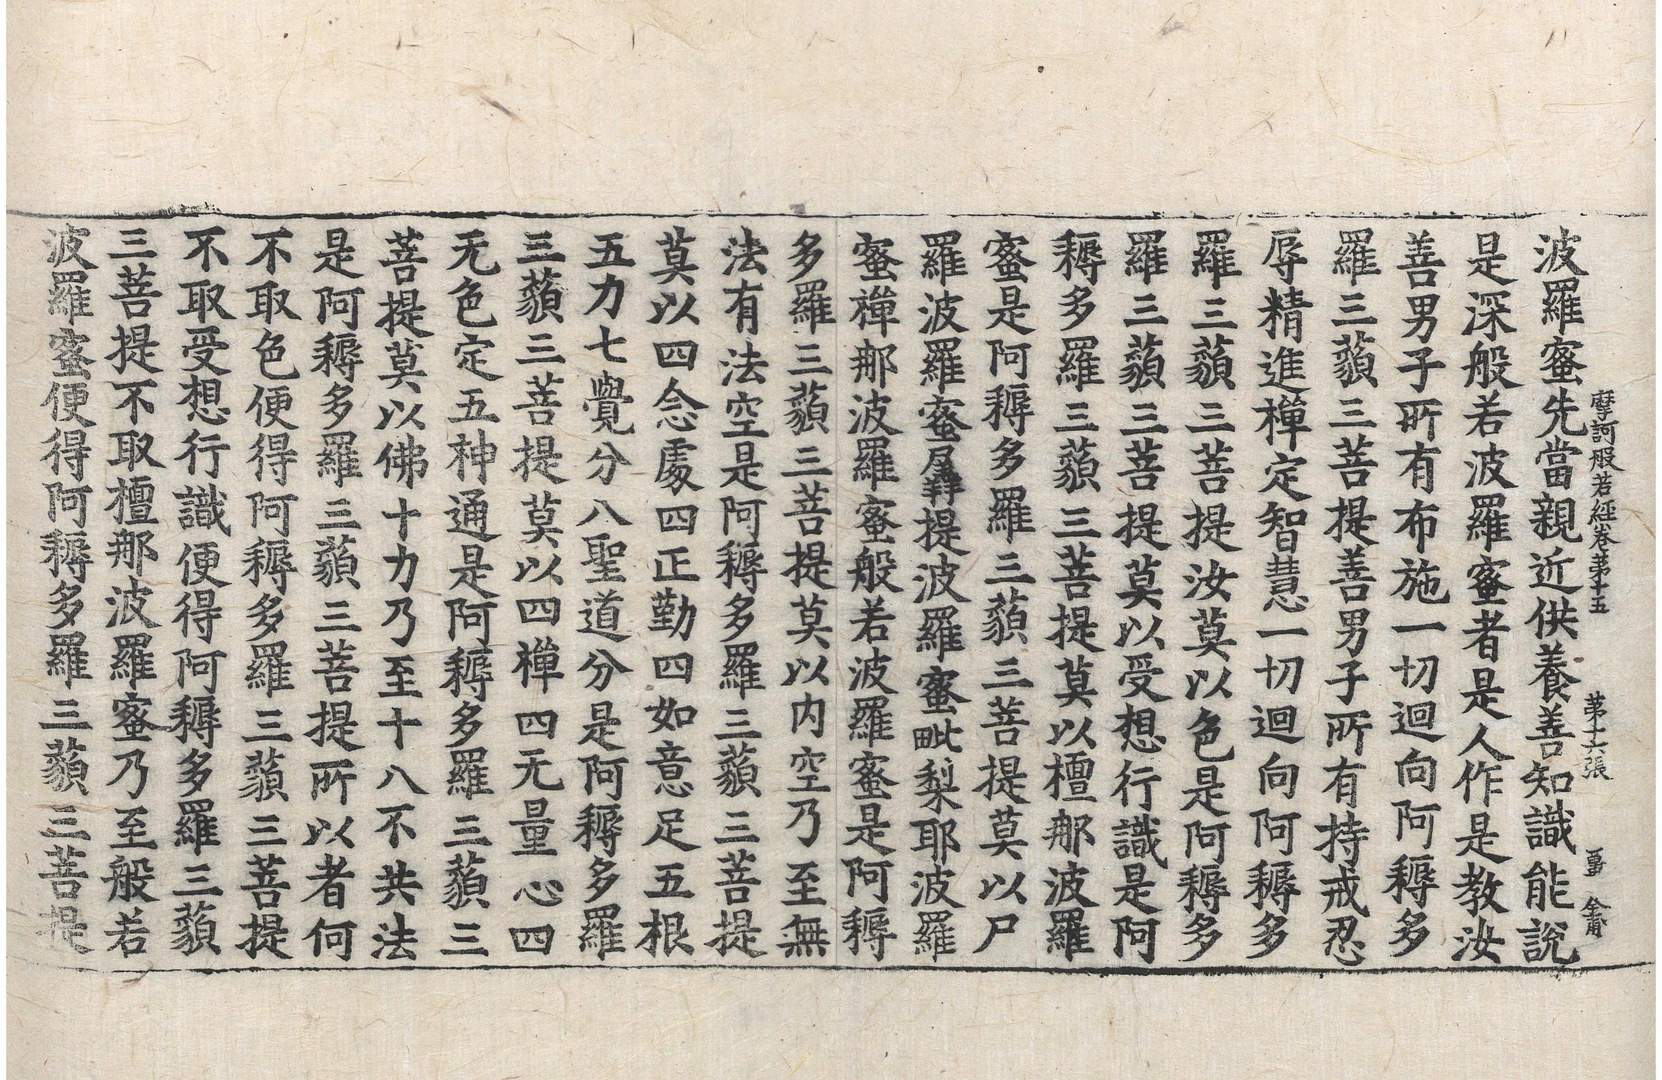 摩訶般若經卷第十五 第十六張 畺 金甫
波羅蜜先當親近供養善知識能說
是深般若波羅蜜者是人作是教汝
善男子所有布施一切迴向阿耨多
羅三藐三菩提善男子所有持戒忍
辱精進禪定智慧一切迴向阿耨多
羅三藐三菩提汝莫以色是阿耨多
羅三藐三菩提莫以受想行識是阿
耨多羅三藐三菩提莫以檀那波羅
蜜是阿耨多羅三藐三菩提莫以尸
羅波羅蜜羼提波羅蜜毗梨耶波羅
蜜禪那波羅蜜般若波羅蜜是阿耨
多羅三藐三菩提莫以內空乃至無
法有法空是阿耨多羅三藐三菩提
莫以四念處四正勤四如意足五根
五力七覺分八聖道分是阿耨多羅
三藐三菩提莫以四禪四无量心四
无色定五神通是阿耨多羅三藐三
菩提莫以佛十力乃至十八不共法
是阿耨多羅三藐三菩提所以者何
不取色便得阿耨多羅三藐三菩提
不取受想行識便得阿耨多羅三藐
三菩提不取檀那波羅蜜乃至般若
波羅蜜便得阿耨多羅三藐三菩提